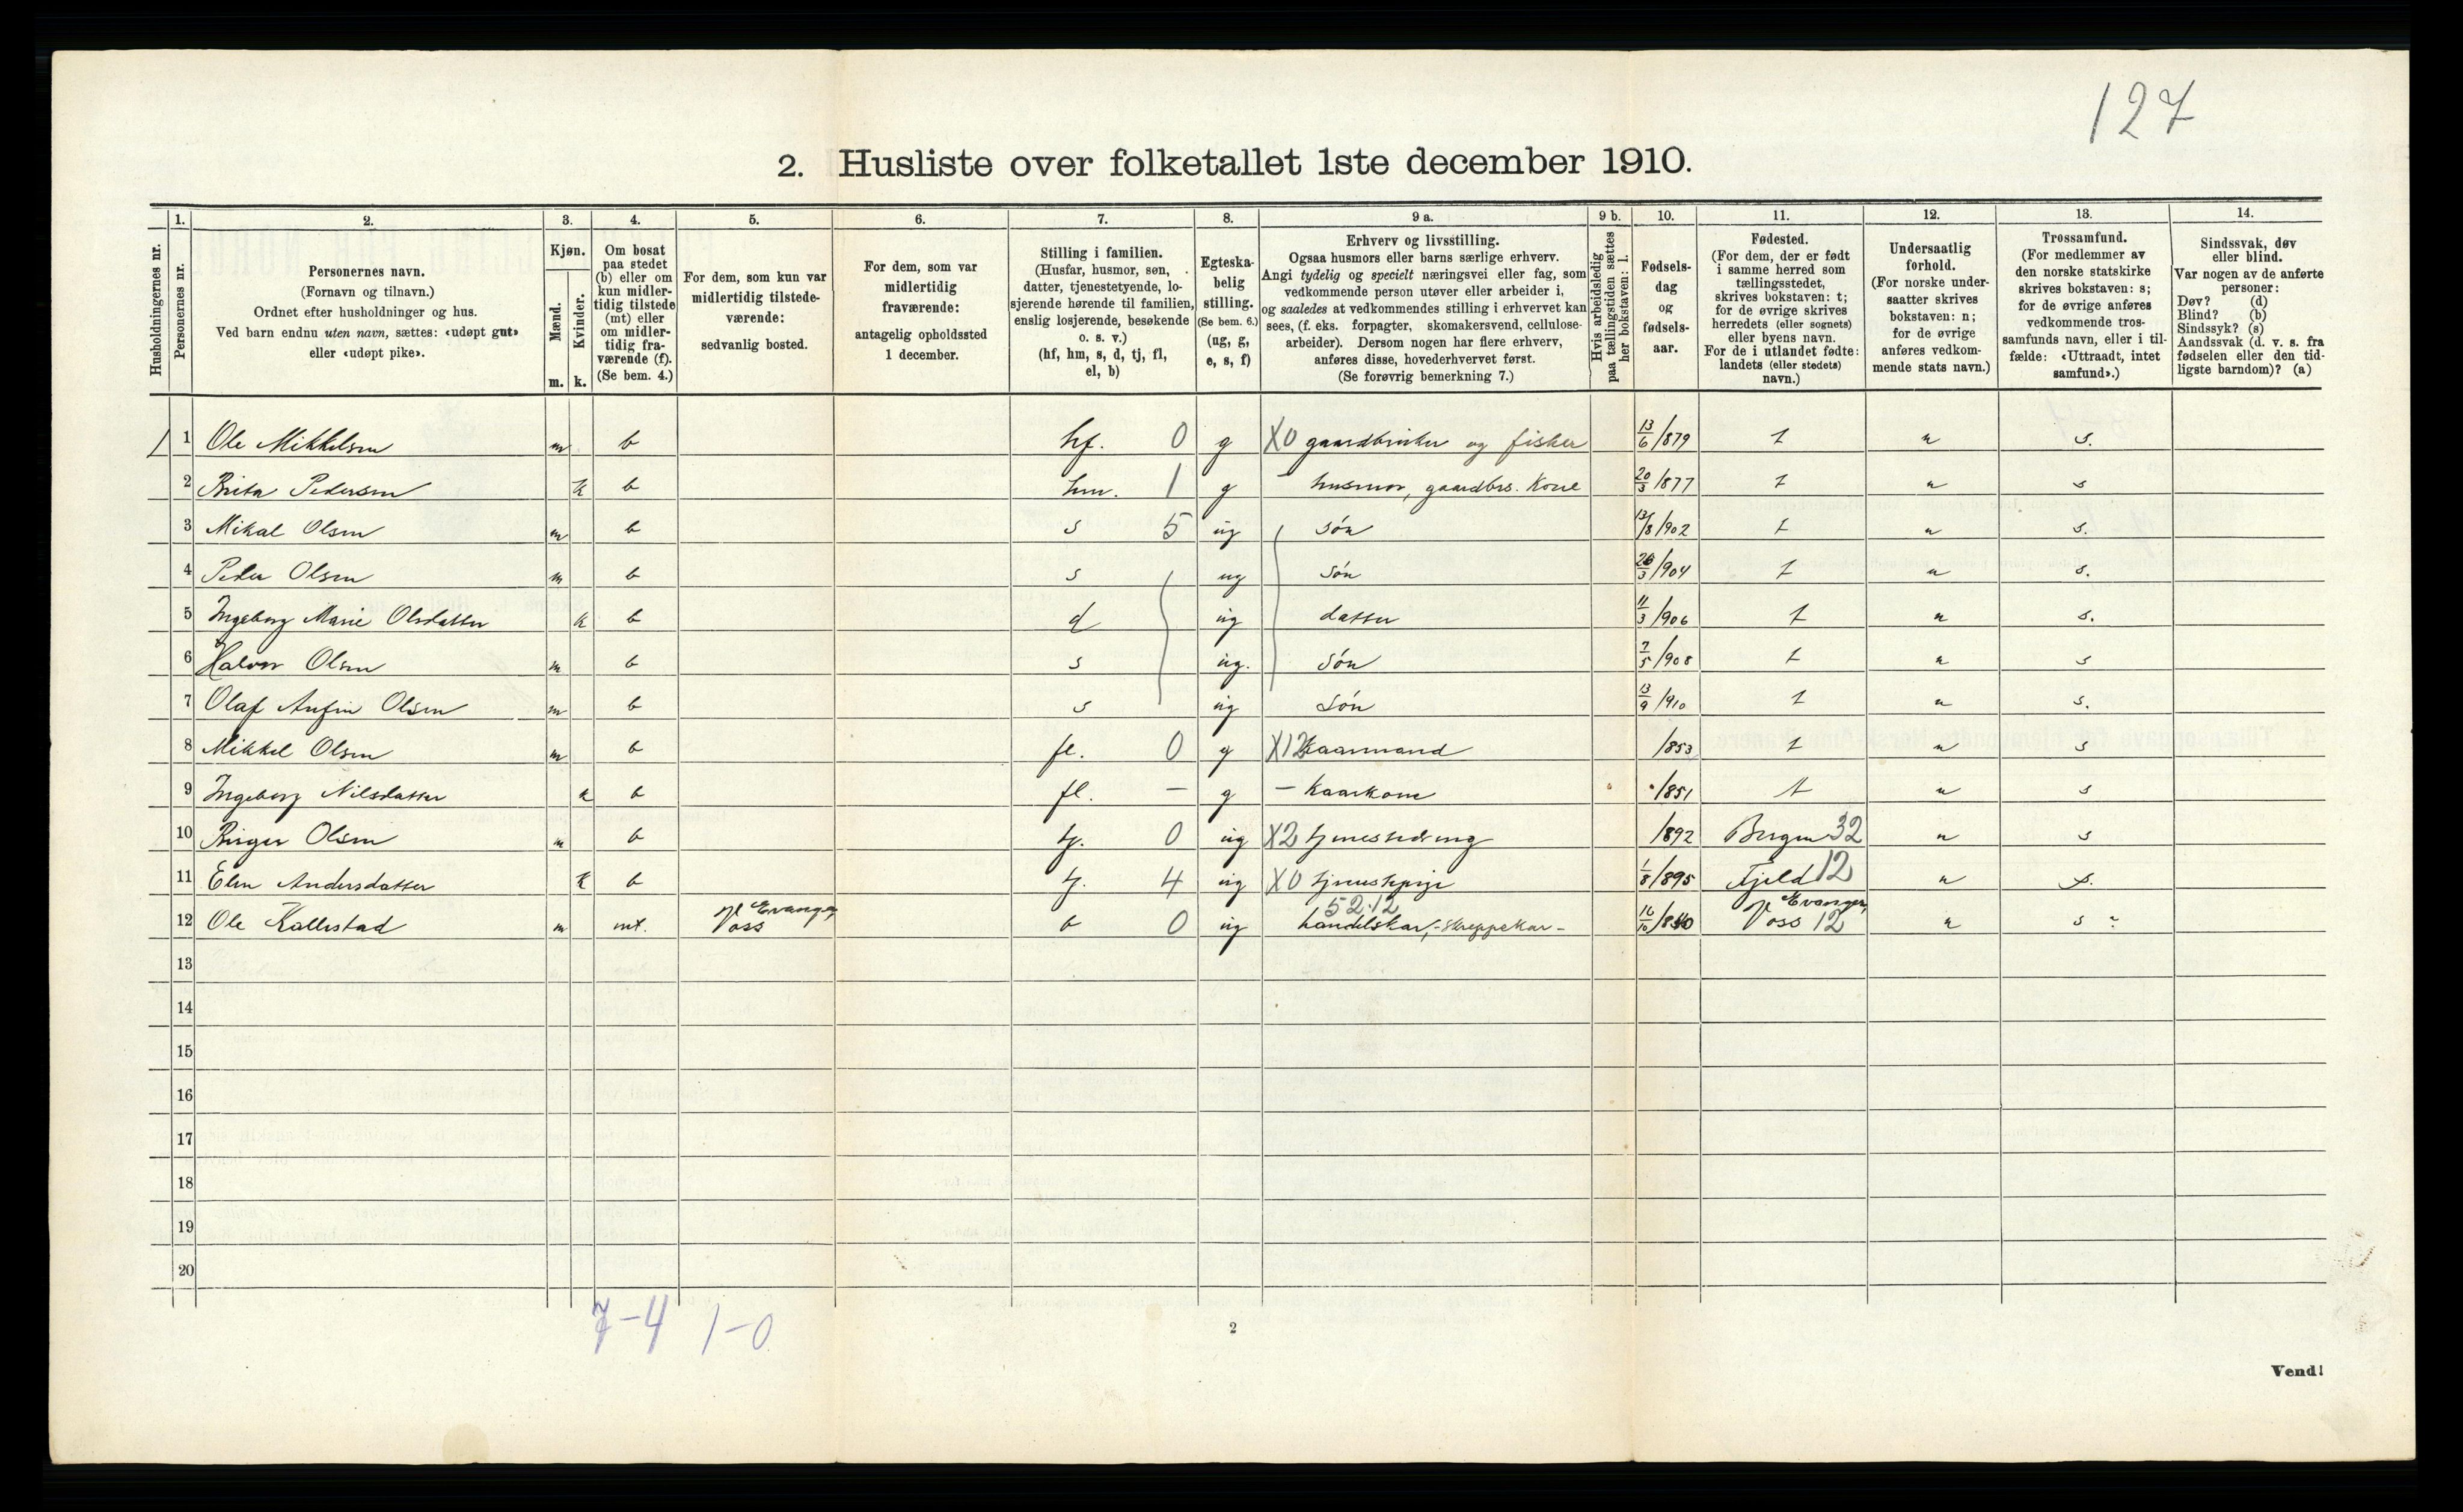 127
2. Husliste over folketallet 1ste december 1910.
Husholdningernes nr.
1. Personernes nr.
2. Personernes navn.
(Fornavn og tilnavn.)
Ordnet efter husholdninger og hus.
Ved barn endnu uten navn, sættes: «udøpt gut»
eller «udøpt pike».
3. Kjøn.
Mænd. m.
Kvinder. k.
4. Om bosat
paa stedet
(b) eller om
kun midler-
tidig tilstede
(mt) eller
om midler-
tidig fra-
værende (f).
(Se bem. 4.)
5. For dem, som kun var
midlertidig tilstede-
værende:
sedvanlig bosted.
6. For dem, som var
midlertidig
fraværende:
antagelig opholdssted
1 december.
7. Stilling i familien.
(Husfar, husmor, søn,
datter, tjenestetyende, lo-
sjerende hørende til familien,
enslig losjerende, besøkende
o. s. v.)
(hf, hm, s, d, tj, fl,
el, b)
8. Egteska-
belig
stilling.
(Se bem. 6.)
(ug, g,
e, s, f)
9 a. Erhverv og livsstilling.
Ogsaa husmors eller barns særlige erhverv.
Angi tydelig og specielt næringsvei eller fag, som
vedkommende person utøver eller arbeider i,
og saaledes at vedkommendes stilling i erhvervet kan
sees, (f. eks. forpagter, skomakersvend, cellulose-
arbeider). Dersom nogen har flere erhverv,
anføres disse, hovederhvervet først.
(Se forøvrig bemerkning 7.)
9 b. Hvis arbeidsledig
paa tællingstiden sættes
her bokstaven: l.
10. Fødsels-
dag
og
fødsels-
aar.
11. Fødested.
(For dem, der er født
i samme herred som
tællingsstedet,
skrives bokstaven: t;
for de øvrige skrives
herredets (eller sognets)
eller byens navn.
For de i utlandet fødte:
landets (eller stedets)
navn.)
12. Undersaatlig
forhold.
(For norske under-
saatter skrives
bokstaven: n;
for de øvrige
anføres vedkom-
mende stats navn.)
13. Trossamfund.
(For medlemmer av
den norske statskirke
skrives bokstaven: s;
for de øvrige anføres
vedkommende tros-
samfunds navn, eller i til-
fælde: «Uttraadt, intet
samfund».)
14. Sindssvak, døv
eller blind.
Var nogen av de anførte
personer:
Døv? (d)
Blind? (b)
Sindssyk? (s)
Aandssvak (d. v. s. fra
fødselen eller den tid-
ligste barndom)? (a)
1 1 Ole Mikkelsen m b hf. 0 g X0 gaardbruker og fisker 13/6/879 t n s.
2 Brita Pedersen k b hm. 1 g - husmor, gaardbrs. Kone 20/3/877 t n s
3 Mikal Olsen m b s 5 ug søn 13/8/902 t n s.
4 Peder Olsen m b s ug søn 26/3/904 t n s.
5 Ingeborg Marie Olsdatter k b d ug datter 11/3/906 t n s.
6 Halvor Olsen m b s ug. søn 7/5/908 t n s
7 Olaf Anfin Olsen m b s ug søn 13/9/910 t n s.
8 Mikkel Olsen m b fl. 0 g X12 Kaarmand /853 t n s
9 Ingeborg Nilsdatter k b fl. - g - Kaarkone /851 t n s
10 Birger Olsen m b tj. 0 ug X2 tjenestedreng /892 Bergen 32 n s
11 Elen Andersdatter k b tj. 4 ug X0 tjenestepige 1/8/895 Fjeld 12 n s.
12 Ole Kallestad m mt. Evanger, Voss b 0 ug 52.12 handelskar, - Skreppekar - 16/10/840 Evanger, Voss 12 n s
13
14
15
16
17
18
19
20
7-4 1-0
2
Vend!